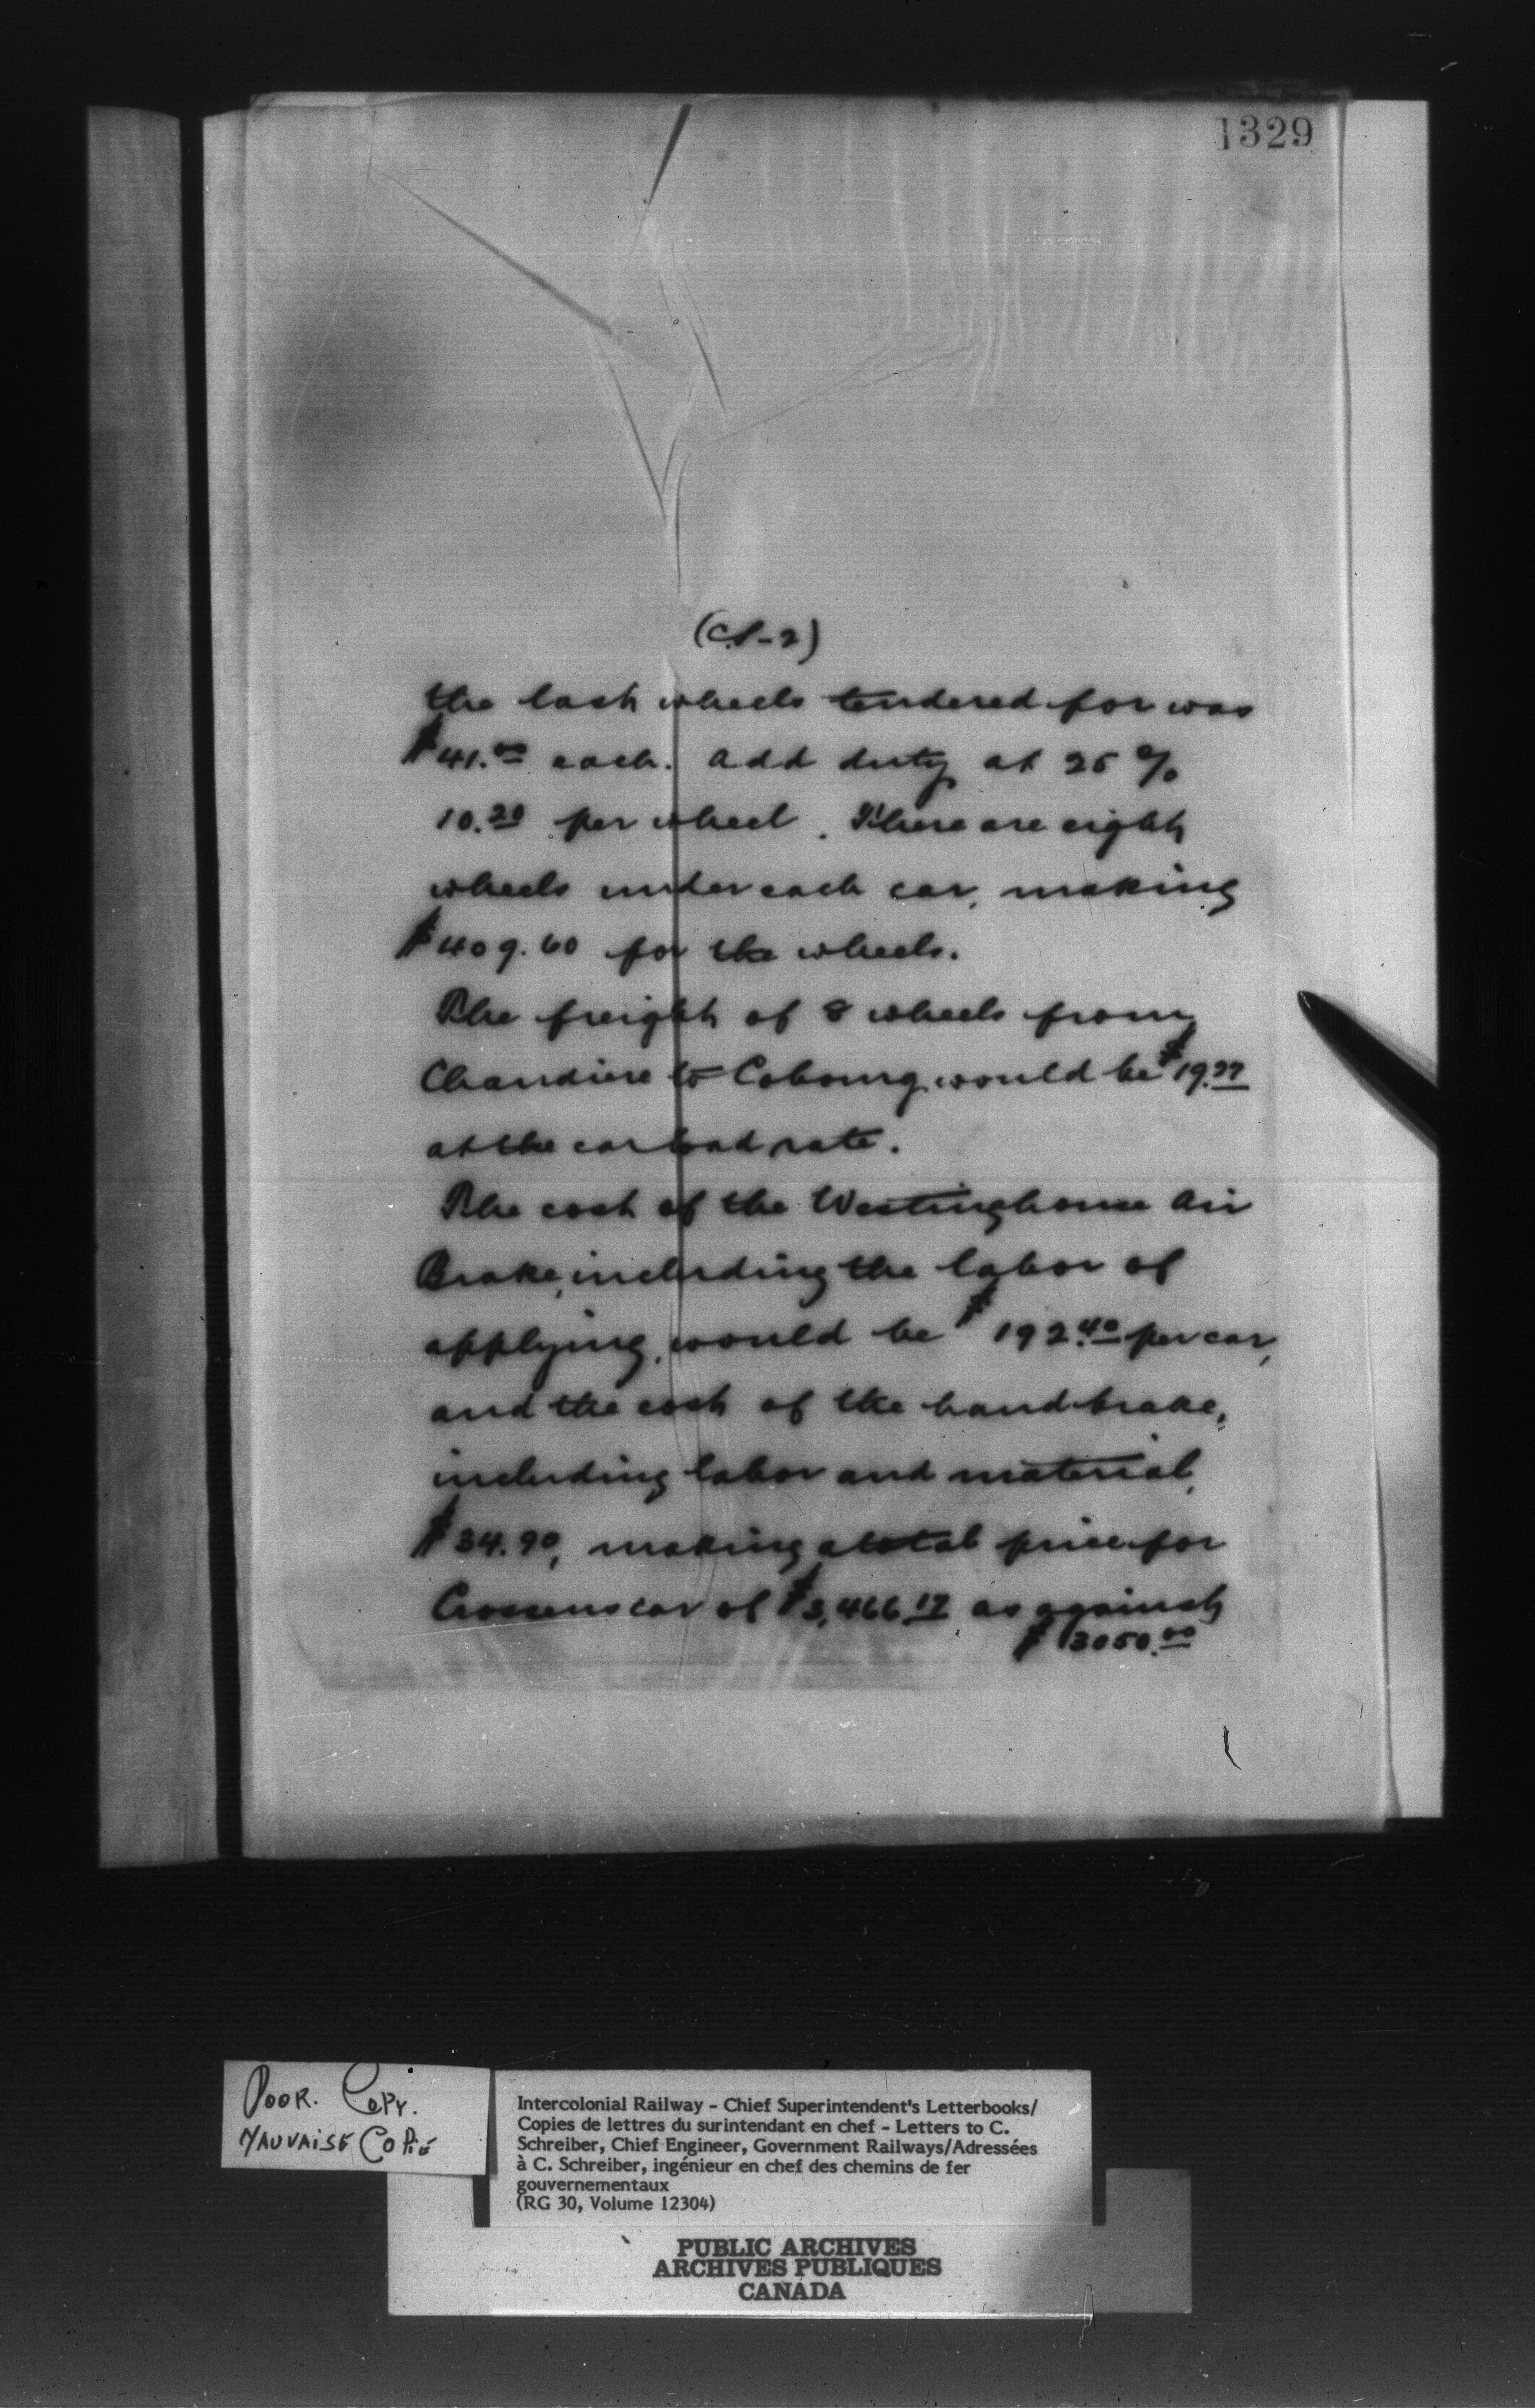 1329
(C.S-2)
the last wheels tendered for was
$41.00 each. Add duty at 25 %
10.20 per wheel. There are eight
wheels under each car, making
$409.60 for the wheels.
The freight of 8 wheels from
Chaudiere to Cobourg would be $19.27
at the carload rate.
The cost of the Westinghouse Air
Brake, including the labor of
applying, would be $192.40 per car,
and the cost of the hand brake,
including labor and material,
$34.90, making a total price for
Crossens car of $3,466.17 as against
$3050.00
POOR. COPY.
MAUVAISE COPIE
Intercolonial Railway - Chief Superintendent's Letterbooks/
Copies de lettres du surintendant en chef - Letters to C.
Schreiber, Chief Engineer, Government Railways/Adressées
à C. Schreiber, ingénieur en chef des chemins de fer
gouvernementaux
(RG 30, Volume 12304)
PUBLIC ARCHIVES
ARCHIVES PUBLIQUES
CANADA